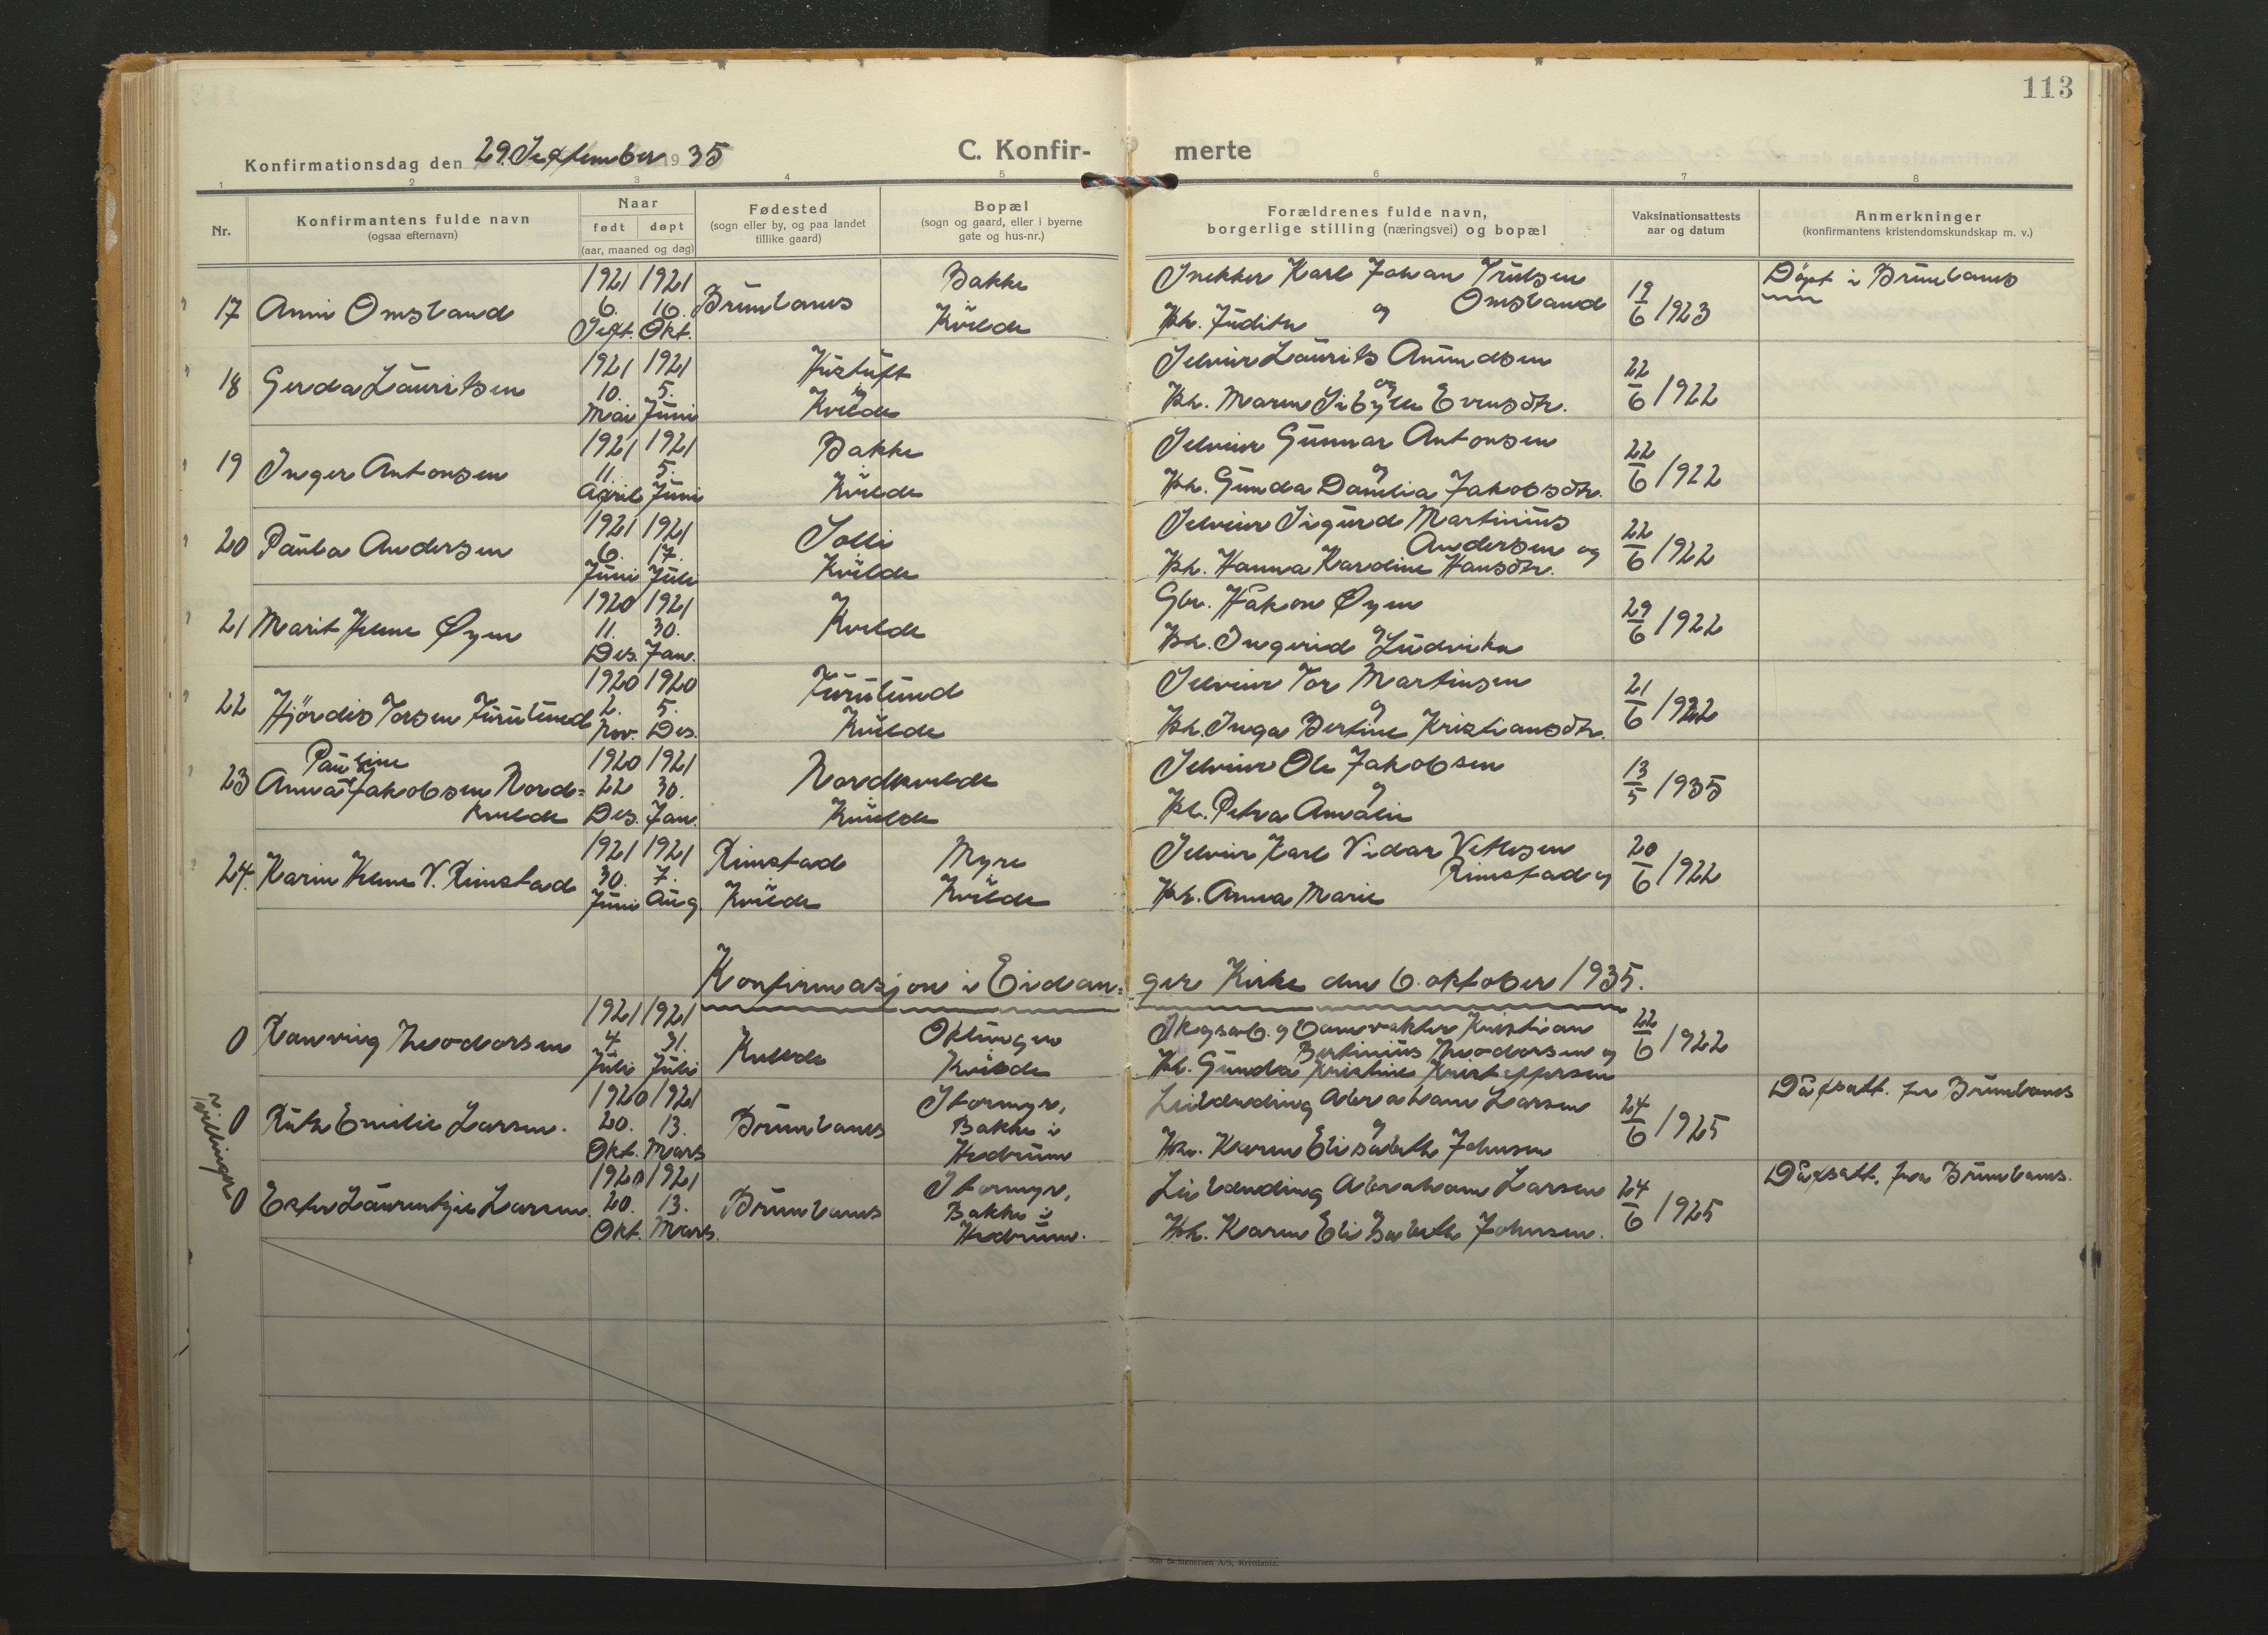 113
Konfirmationsdag den 29. September 1935
C. Konfir-
merte
1 2 3 4 5 6 7 8
Nr.
Konfirmantens fulde navn
(ogsaa efternavn)
Naar
født døpt
(aar, maaned og dag)
Fødested
(sogn eller by, og paa landet
tillike gaard)
Bopæl
(sogn og gaard, eller i byerne
gate og hus-nr.)
Forældrenes fulde navn,
borgerlige stilling (næringsvei) og bopæl
Vaksinationsattests
aar og datum
Anmerkninger
(konfirmantens kristendomskundskap m. v.)
17 Anni Omsland
1921 1921
6. 16.
Sept. Okt.
Brunlanes
Bakke
i
Kvelde
Snekker Karl Johan Trulsen
og Omsland
Hk. Judith
19/6 1923
Döpt i Brunlanes
18 Gerda Lauritsen
1921 1921
10. 5.
Mai Juni
Hustuft
i
Kvelde
Selveier Laurits Amundsen
og
Hk. Maren Sibylle Evensdtr.
22/6 1922
19 Inger Antonsen
1921 1921
11. 5.
April Juni
Bakke
i
Kvelde
Selveier Gunnar Antonsen
og
Hk. Gunda Danelia Jakobsdtr.
22/6 1922
20 Paula Andersen
1921 1921
6. 17.
Juni Juli
Solli
i
Kvelde
Selveier Sigurd Martinius
Andersen og
Hk. Hanna Karoline Hansdtr.
22/6 1922
21 Marit Helene Øyen
1920 1921
11. 30.
Des. Jan.
Kvelde
Gbr. Håkon Øyen
og
Hk. Ingerid Ludvika
29/6 1922
22 Hjördis Torsen Furulund
1920 1920
2. 5.
Nov. Des.
Furulund
i
Kvelde
Selveier Tor Martinsen
og
Hk. Inga Bertine Kristiansdtr.
21/6 1922
Pauline
23 Anna Jakobsen Nord=
kvelde
1920 1921
22 30.
Des. Jan.
Nordkvelde
i
Kvelde
Selveier Ole Jakobsen
og
Hk. Petra Amalie
13/5 1935
24. Karin Helene V. Rimstad
1921 1921
30. 7.
Juni Aug.
Rimstad
i
Kvelde
Myre
i
Kvelde
Selveier Karl Vidar Vetlesen
Rimstad og
Hk. Anna Marie
20/6 1922
Konfirmasjon i Eidan=
ger Kirke den 6. oktober 1935.
0 Ranveig Theodorsen
1921 1921
4. 31.
Juli Juli
Kvelde
Oklungen
i
Kvelde
Skogsarb. og banevakter Kristian
Bertinius Theodorsen og
Hk. Gunda Kristine Kristoffersen
22/6 1922
Tvillinger
0 Ruth Emilie Larsen.
1920 1921
20. 13.
Okt. Mars
Brunlanes
Stormyr,
Bakke i
Hedrum
Leilending Abraham Larsen
og
Hk. Karen Elisabeth Johnsen
24/6 1925
Dåpsatt. fra Brunlanes
0 Ester Laurentzie Larsen
1920 1921
20. 13.
Okt. Mars.
Brunlanes
Stormyr,
Bakke i
Hedrum.
Leilending Abraham Larsen
Hk. Karen Elisabeth Johnsen.
24/6 1925
Dåpsatt. fra Brunlanes.
Sem & Stenersen A/S, Kristiania.